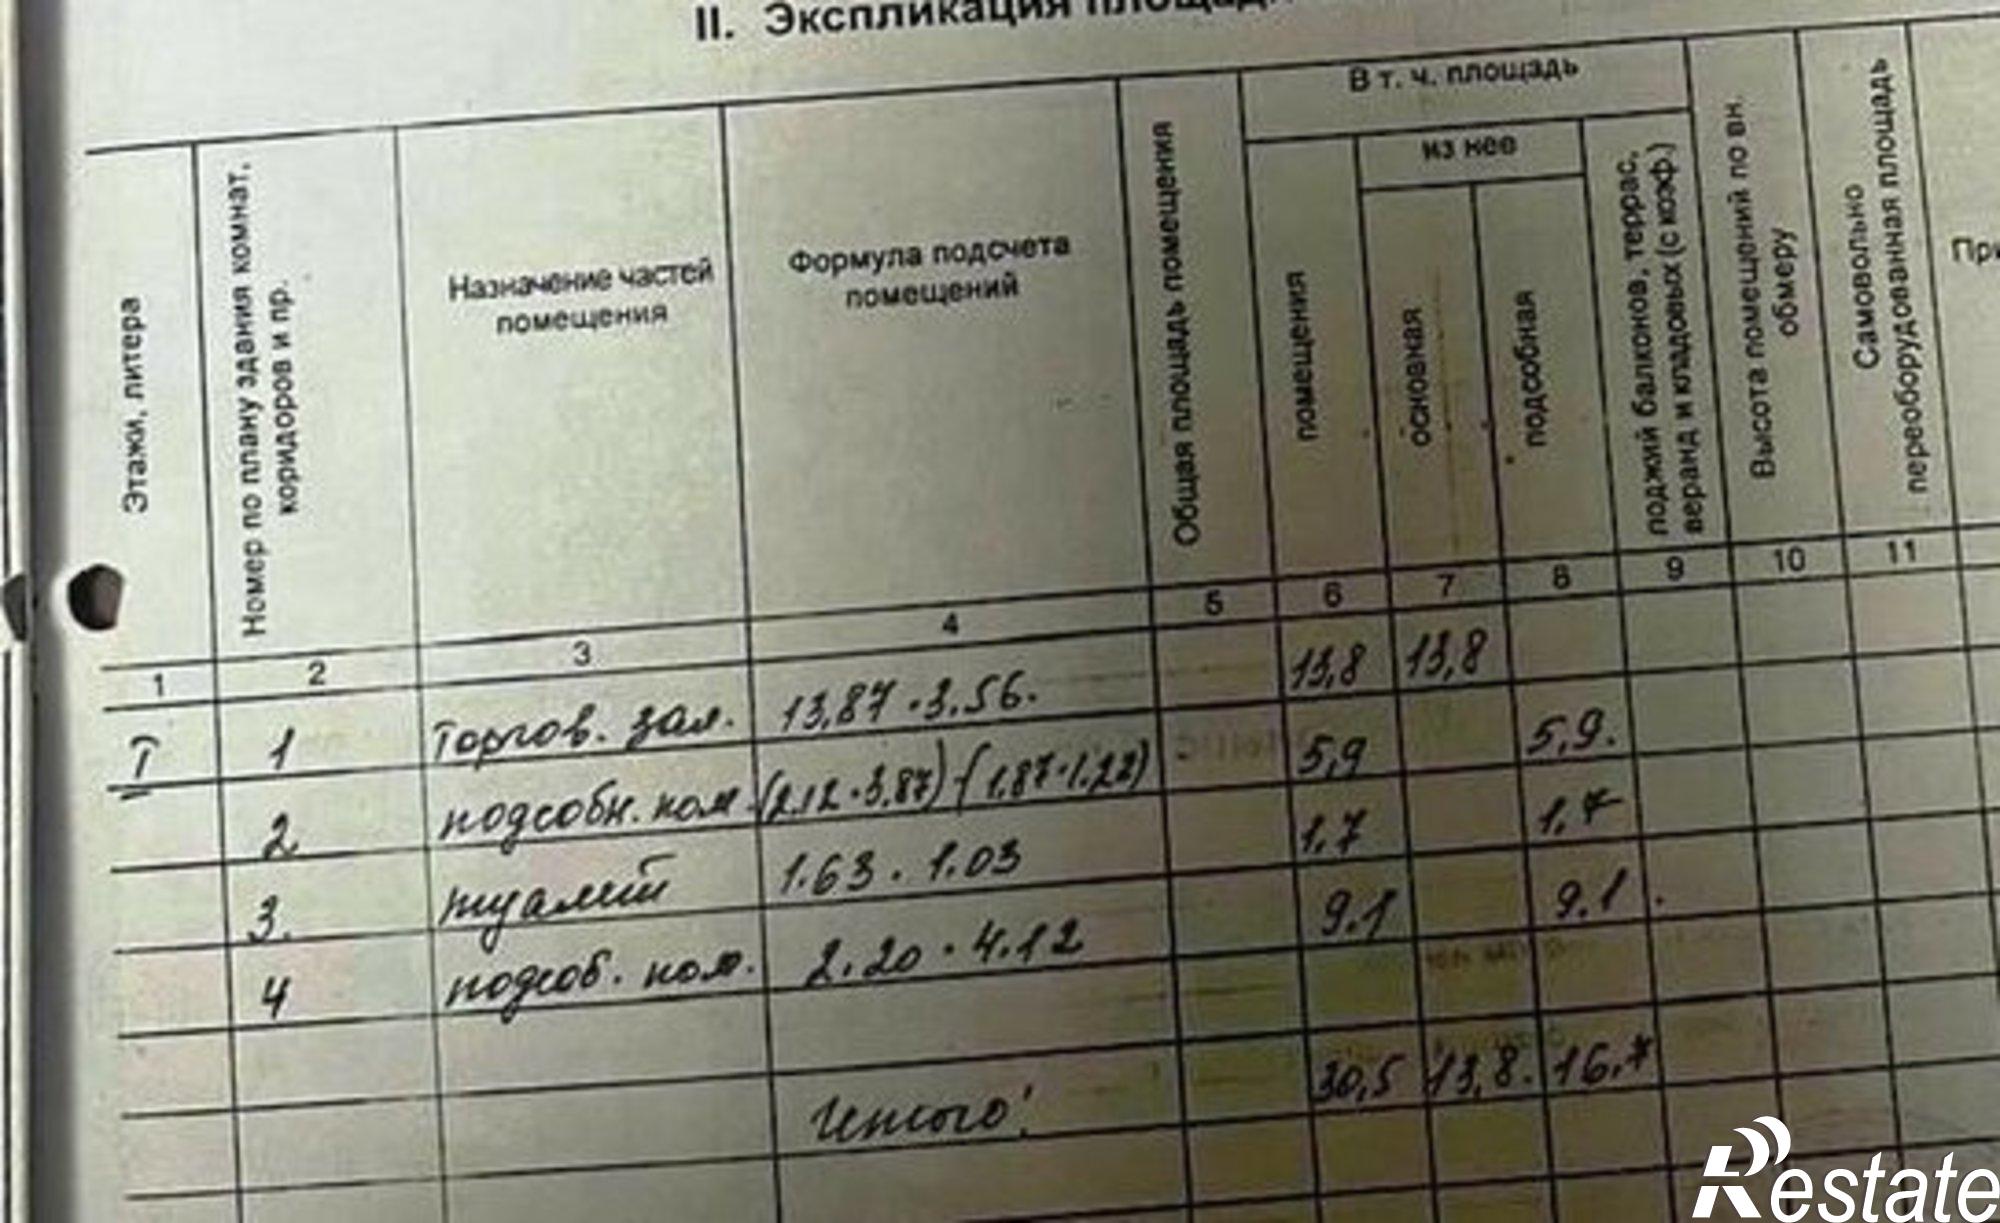 II. Экспликация площади
Этажи, литера
Номер по плану здания комнат,
коридоров и пр.
Назначение частей
помещения
Формула подсчета
помещений
Общая площадь помещения
В т. ч. площадь
помещения
из нее
основная
подсобная
лоджий балконов, террас,
веранд и кладовых (с коэф.)
Высота помещений по вн.
обмеру
Самовольно
переоборудованная площадь
При
1 2 3 4 5 6 7 8 9 10 11
I 1 торгов. зал. 13,87 · 3.56. 13,8 13,8
2 подсобн. ком. (2.12 · 3,87) - (1.87 · 1.22) 5,9 5,9.
3. туалет 1.63 . 1.03 1.7 1.7
4 подсоб. ком. 2.20 · 4.12 9.1 9.1
Итого: 30,5 13,8. 16,7
Restate